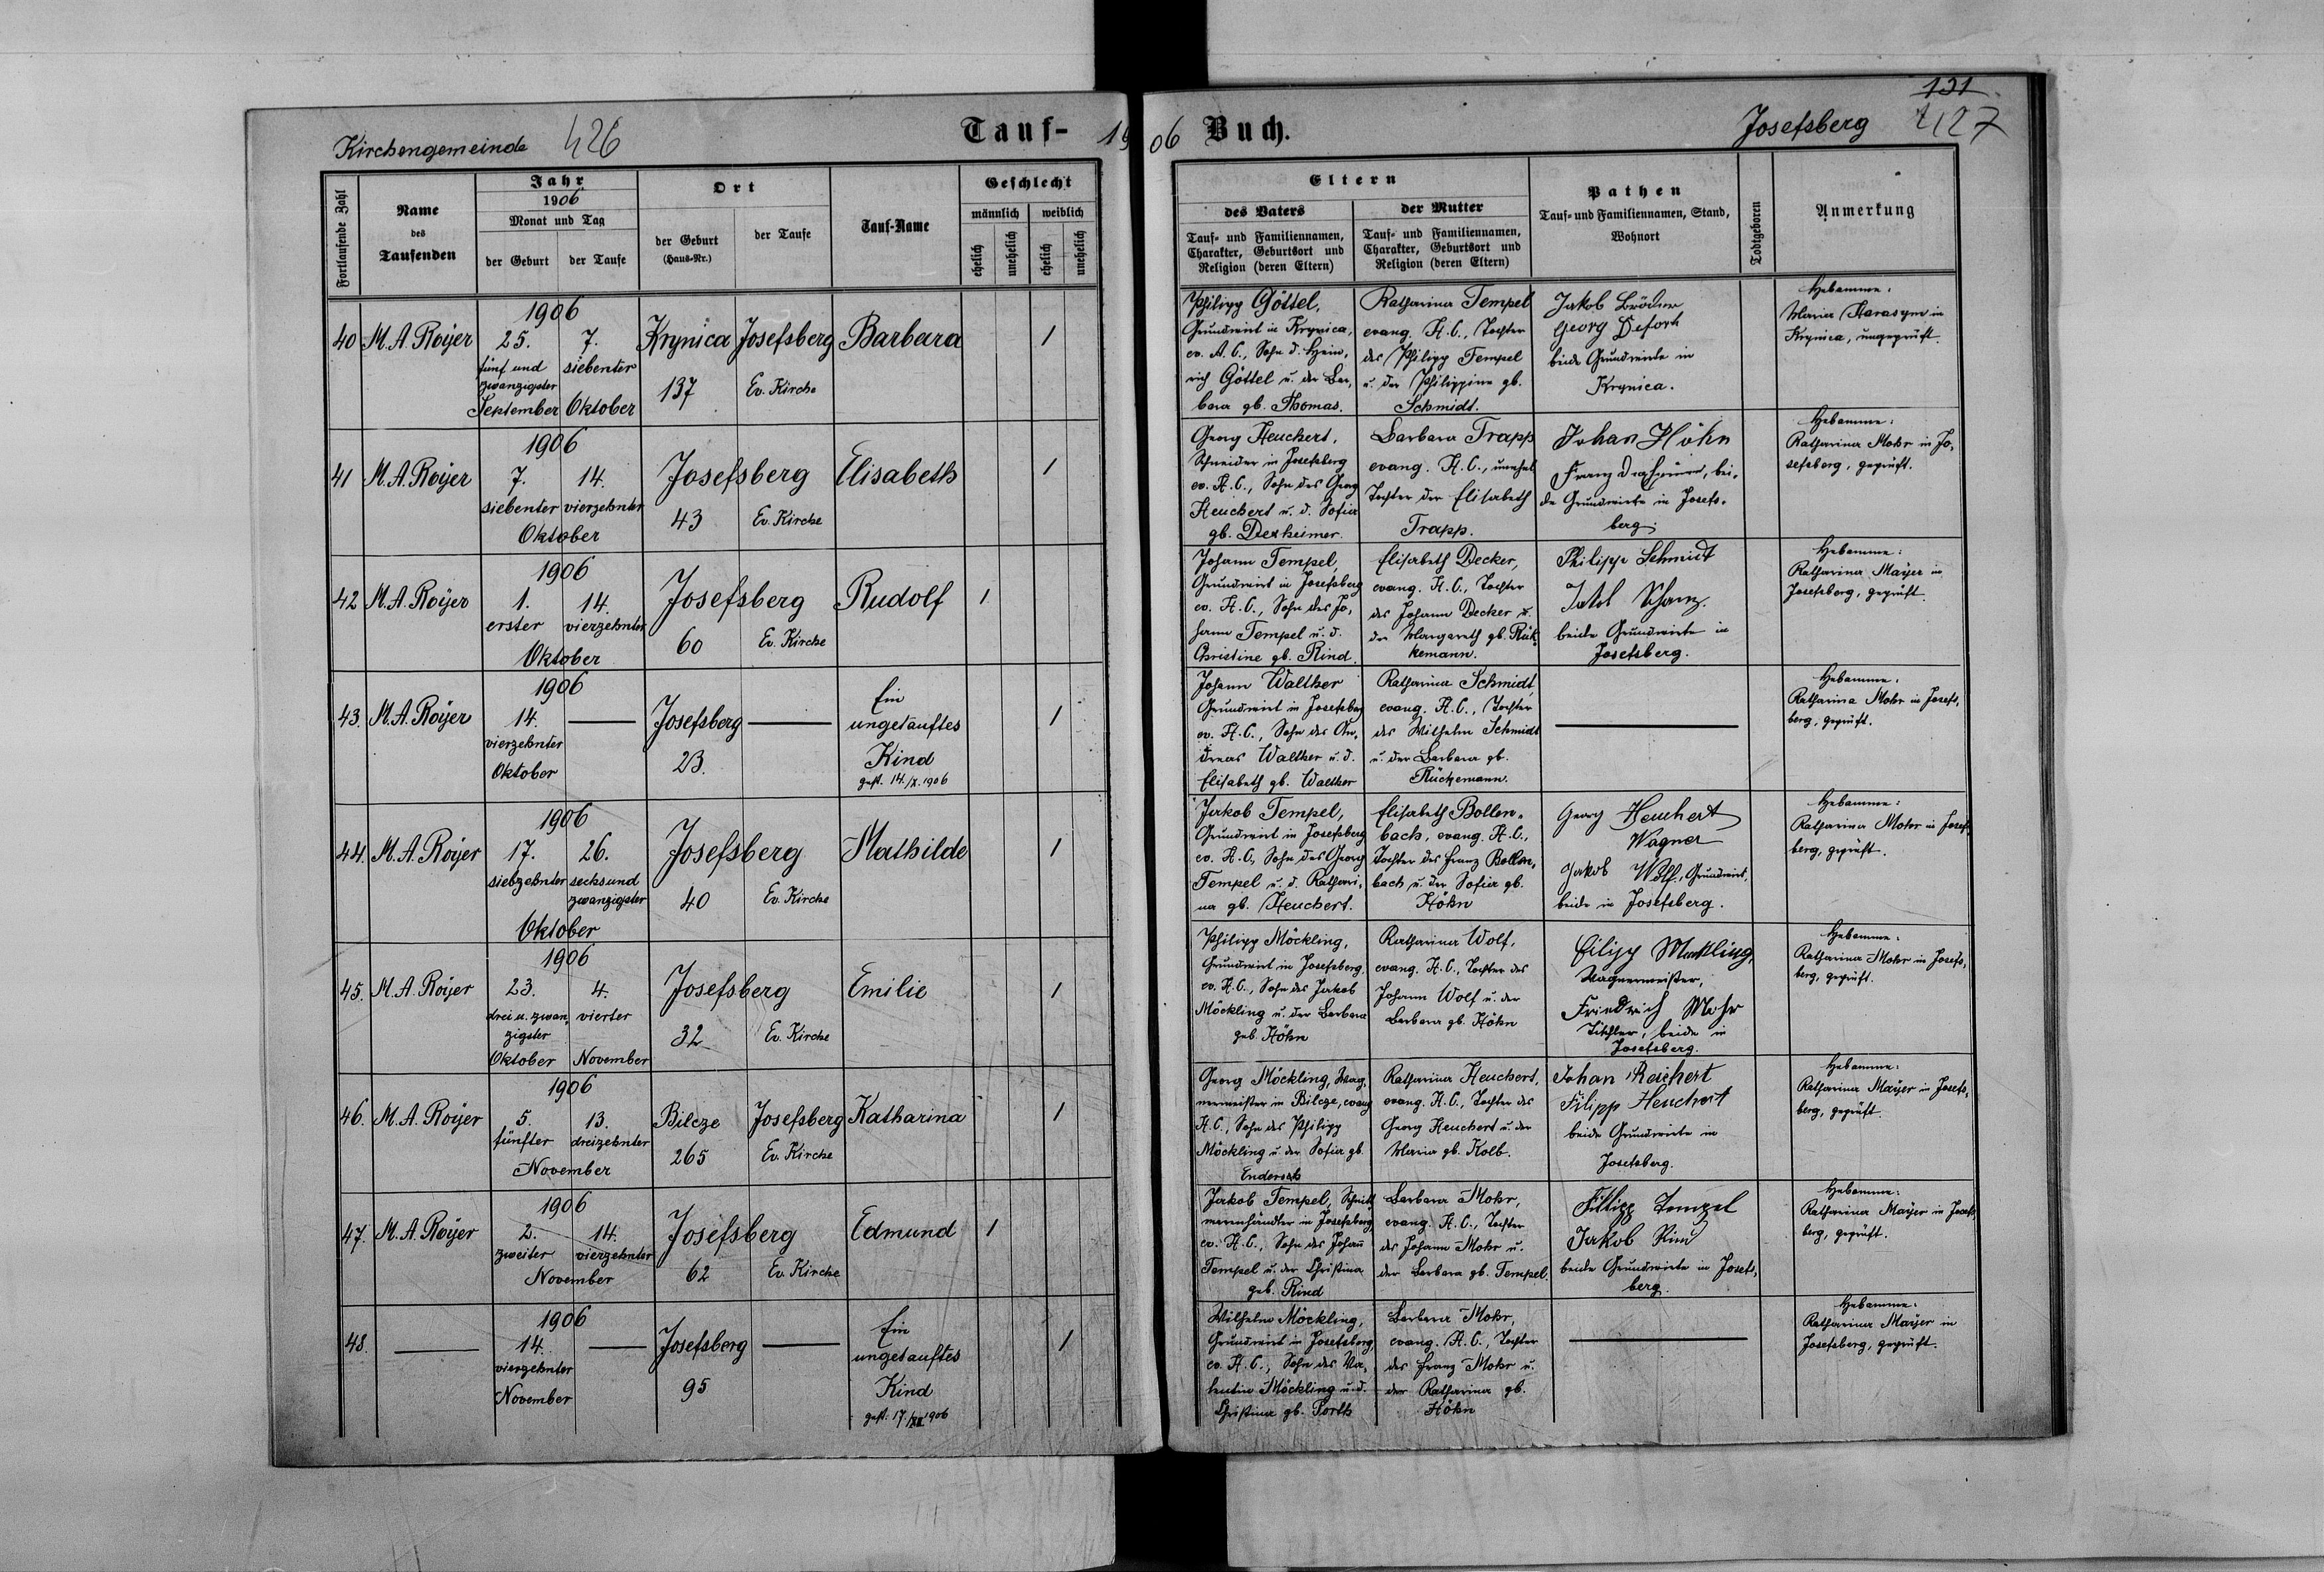 Kirchengemeinde 426 Tauf- 1906 Buch. Josefsberg 131 427
Fortlaufende Zahl
Name des Taufenden
Jahr 1906
Monat und Tag
der Geburt der Taufe
Ort
der Geburt (Haus-Nr.) der Taufe
Tauf-Name
Geschlecht
männlich weiblich
ehelich unehelich ehelich unehelich
Eltern
des Vaters
Tauf- und Familiennamen,
Charakter, Geburtsort und
Religion (deren Eltern)
der Mutter
Tauf- und Familiennamen,
Charakter, Geburtsort und
Religion (deren Eltern)
Pathen
Tauf- und Familiennamen, Stand,
Wohnort
Todtgeboren
Anmerkung
1906
40 M. A. Royer 25. 7. Krynica Josefsberg Barbara 1
fünf und siebenter
zwanzigster 137 Ev. Kirche
September Oktober
Philipp Göttel,
Grundwirt in Krynica,
ev. A. C., Sohn d. Hein,
rich Göttel u. der Bar,
bara gb. Thomas.
Katharina Tempel
evang. H. C., Tochter
des Philipp Tempel
u. der Philippine gb.
Schmidt.
Jakob Bröder
Georg Deforth
beide Grundwirte in
Krynica.
Hebamme:
Maria Harasym in
Krynica, ungeprüft.
1906
41 M. A. Royer 7. 14. Josefsberg Elisabeth 1
siebenter vierzehnter 43 Ev. Kirche
Oktober
Georg Heuchert,
Schneider in Josefsberg
ev. H. C., Sohn des Georg
Heuchert u. d. Sofia
gb. Dexheimer.
Barbara Trapp
evang. H. C., unehel
Tochter der Elisabeth
Trapp.
Johan Höhn
Franz bei,
de Grundwirte in Josefs,
berg.
Hebamme:
Katharina Mohr in Jo,
sefsberg, geprüft.
1906
42 M. A. Royer 1. 14. Josefsberg Rudolf 1
erster vierzehnter 60 Ev. Kirche
Oktober
Johann Tempel,
Grundwirt in Josefsberg
ev. H. C., Sohn des Jo,
hann Tempel u. d.
Christine gb. Rind.
Elisabeth Decker,
evang. H. C., Tochter
des Johann Decker u.
der Margareth gb. Rük,
kemann.
Philipp Schmidt
Jakob Schanz.
beide Grundwirte in
Josefsberg.
Hebamme:
Katharina Mayer in
Josefsberg, geprüft.
1906
43. M. A. Royer 14. Josefsberg Ein 1
vierzehnter 23. ungetauftes
Oktober Kind
gest. 14./X. 1906
Johann Walther
Grundwirt in Josefsberg
ev. H. C., Sohn des An,
dreas Walther u. d.
Elisabeth gb. Walther
Katharina Schmidt,
evang. H. C., Tochter
des Wilhelm Schmidt
u. der Barbara gb.
Rückemann.
Hebamme:
Katharina Mohr in Josefs,
berg, geprüft.
1906
44. M. A. Royer 17. 26. Josefsberg Mathilde 1
siebzehnter sechsund
zwanzigster 40 Ev. Kirche
Oktober
Jakob Tempel,
Grundwirt in Josefsberg
ev. H. C., Sohn des Georg
Tempel u. d. Kathari,
na gb. Heuchert.
Elisabeth Bollen,
bach, evang. H. C.,
Tochter des Franz Bollen,
bach u. der Sofia gb.
Höhn
Georg Heuchert
Wagner
Jakob Wolf, Grundwirt,
beide in Josefsberg.
Hebamme:
Katharina Mohr in Josefs,
berg, geprüft.
1906
45. M. A. Royer 23. 4. Josefsberg Emilie 1
drei u. zwan, vierter
zigster 32 Ev. Kirche
Oktober November
Philipp Möckling,
Grundwirt in Josefsberg,
ev. H. C., Sohn des Jakob
Möckling u. der Barbara
geb. Höhn
Katharina Wolf,
evang. H. C., Tochter des
Johann Wolf u. der
Barbara gb. Höhn
Filipp Mackling,
Wagnermeister,
Friedrich Mohr
Tischler, beide in
Josefsberg.
Hebamme:
Katharina Mohr in Josefs,
berg, geprüft.
1906
46. M. A. Royer 5. 13. Bilcze Josefsberg Katharina 1
fünfter dreizehnter 265 Ev. Kirche
November
Georg Möckling, Wag,
nermeister in Bilcze, evang
H. C., Sohn des Philipp
Möckling u. der Sofia gb.
Enders
Katharina Heuchert,
evang. H. C., Tochter des
Georg Heuchert u. der
Maria gb. Kolb.
Johan Reichert
Filipp Heuchert
beide Grundwirte in
Josefsberg.
Hebamme:
Katharina Mayer in Josefs,
berg, geprüft.
1906
47. M. A. Royer 2. 14. Josefsberg Edmund 1
zweiter vierzehnter 62 Ev. Kirche
November
Jakob Tempel, Schnitt
warenhändler in Josefsberg
ev. H. C., Sohn des Johann
Tempel u. der Christina
geb. Rind
Barbara Mohr,
evang. H. C., Tochter
des Johann Mohr u.
der Barbara gb. Tempel.
Fillipp Tempel
Jakob Rind
beide Grundwirte in Josefs,
berg.
Hebamme:
Katharina Mayer in Josefs,
berg, geprüft.
1906
48. 14. Josefsberg Ein 1
vierzehnter 95 ungetauftes
November Kind
gest. 17./XII 1906
Wilhelm Möckling,
Grundwirt in Josefsberg,
ev. H. C., Sohn des Va,
lentin Möckling u. d.
Christina gb. Porth
Barbara Mohr,
evang. H. C., Tochter
des Franz Mohr u.
der Katharina gb.
Höhn
Hebamme:
Katharina Mayer in
Josefsberg, geprüft.